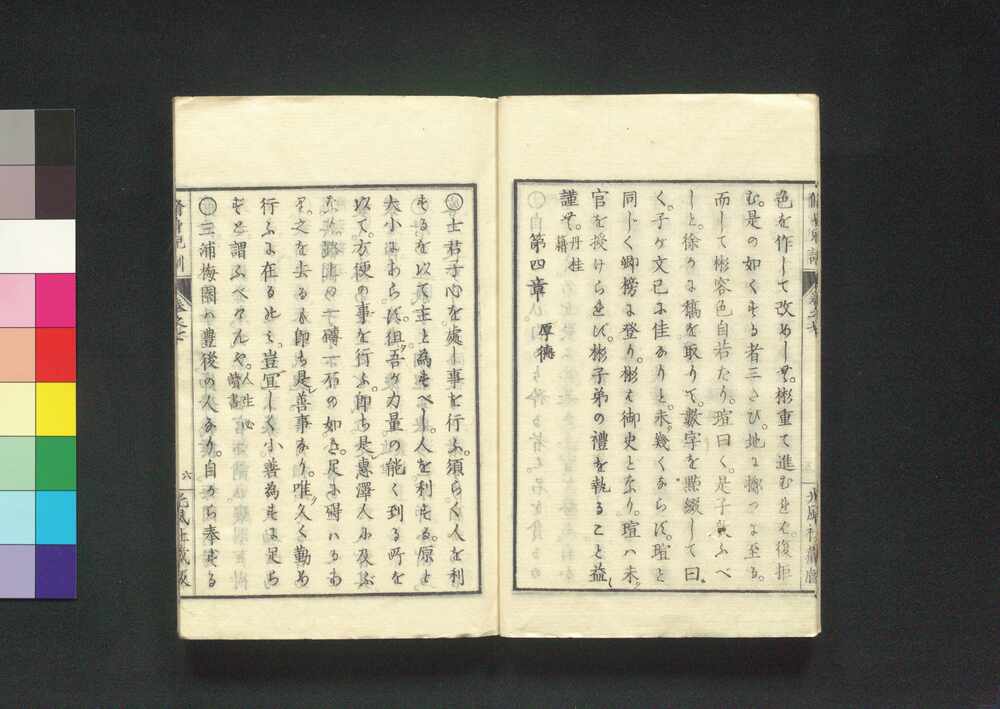 色を作して改めしむ。彬重て進むをや。復拒
む。是の如くする者三たび。地に擲つに至る。
而して彬容色自若たり。瑄曰く。是子教ふべ
しと。徐かに稿を取りて。數字を點綴して曰
く。子が文已に佳なりと。未幾くならず。瑄と
同じく鄉榜に登り。彬は御史となり。瑄ハ未
官を授けらせず。彬子弟の禮を執ること益
謹む。丹桂籍
第四章 厚德
士君子心を處し事を行ふ。須らく人を利
するを以て主と為すべし。人を利する。原と
大小にあらず。但吾が力量の能く到る所を
以て。方便の事を行ふ。即ち是惠澤人に及ぶ
路上の一磚一石の如き。足に碍ハるあ
り。之を去るも即ち是善事なり。唯久く勤め
行ふに在るのミ。豈冝しく小善為すに足ら
ずと謂ふべけんや。人生必讀書
三浦梅園ハ豊後の人なり。自から奉ずる
六